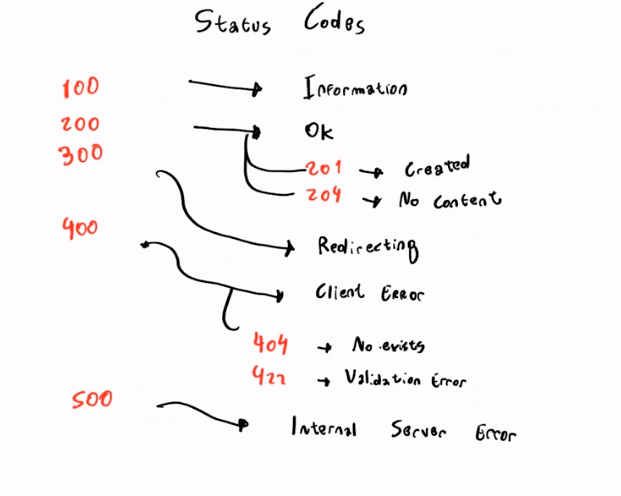 Status Codes
100 → Information
200 → Ok
300
201 → Created
204 → No Content
400
Redirecting
Client Error
404 → No exists
422 → Validation Error
500
Internal Server Error